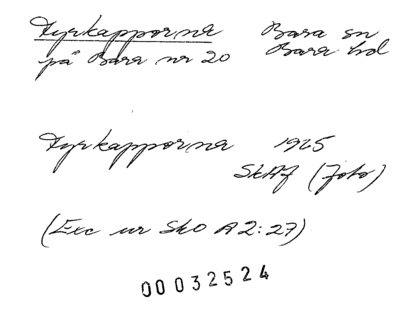 Fyrkapporna Bara sn
på Bara nr 20 Bara hd
Fyrkapporna 1925
SkAf (foto)
(Exc ur SkO A2:27)
00032524